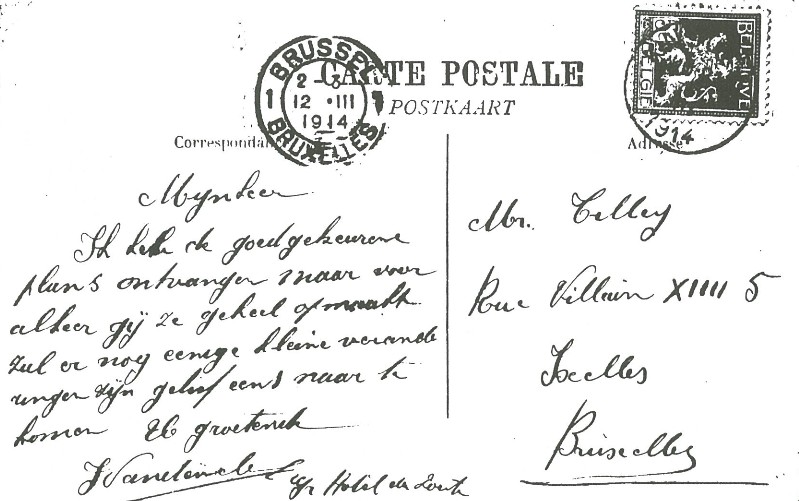 CARTE POSTALE
POSTKAART
BRUSSEL
2-3
1 12 III 1
1914
BRUXELLES
BELGIE
BELGIQUE
1914
Correspondance
Adresse
Mynheer
Ik heb de goedgekeurene
plans ontvangen maar voor
alleer gij ze geheel opmaakt
zul er nog eenige kleine verande
ringen zijn gelief eens naar te
komen Ub groetend
Mr. Telley
Rue Villain XIIII 5
Ixelles
Bruxelles
Hotel de